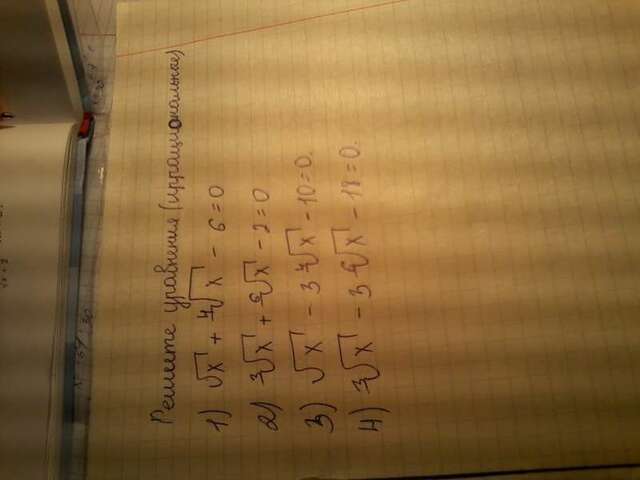 Решите уравнения (иррациональные)
1) √x + ⁴√x - 6 = 0
2) ³√x + ⁶√x - 2 = 0
3) √x - 3 ⁴√x - 10 = 0.
4) ³√x - 3 ⁶√x - 18 = 0.